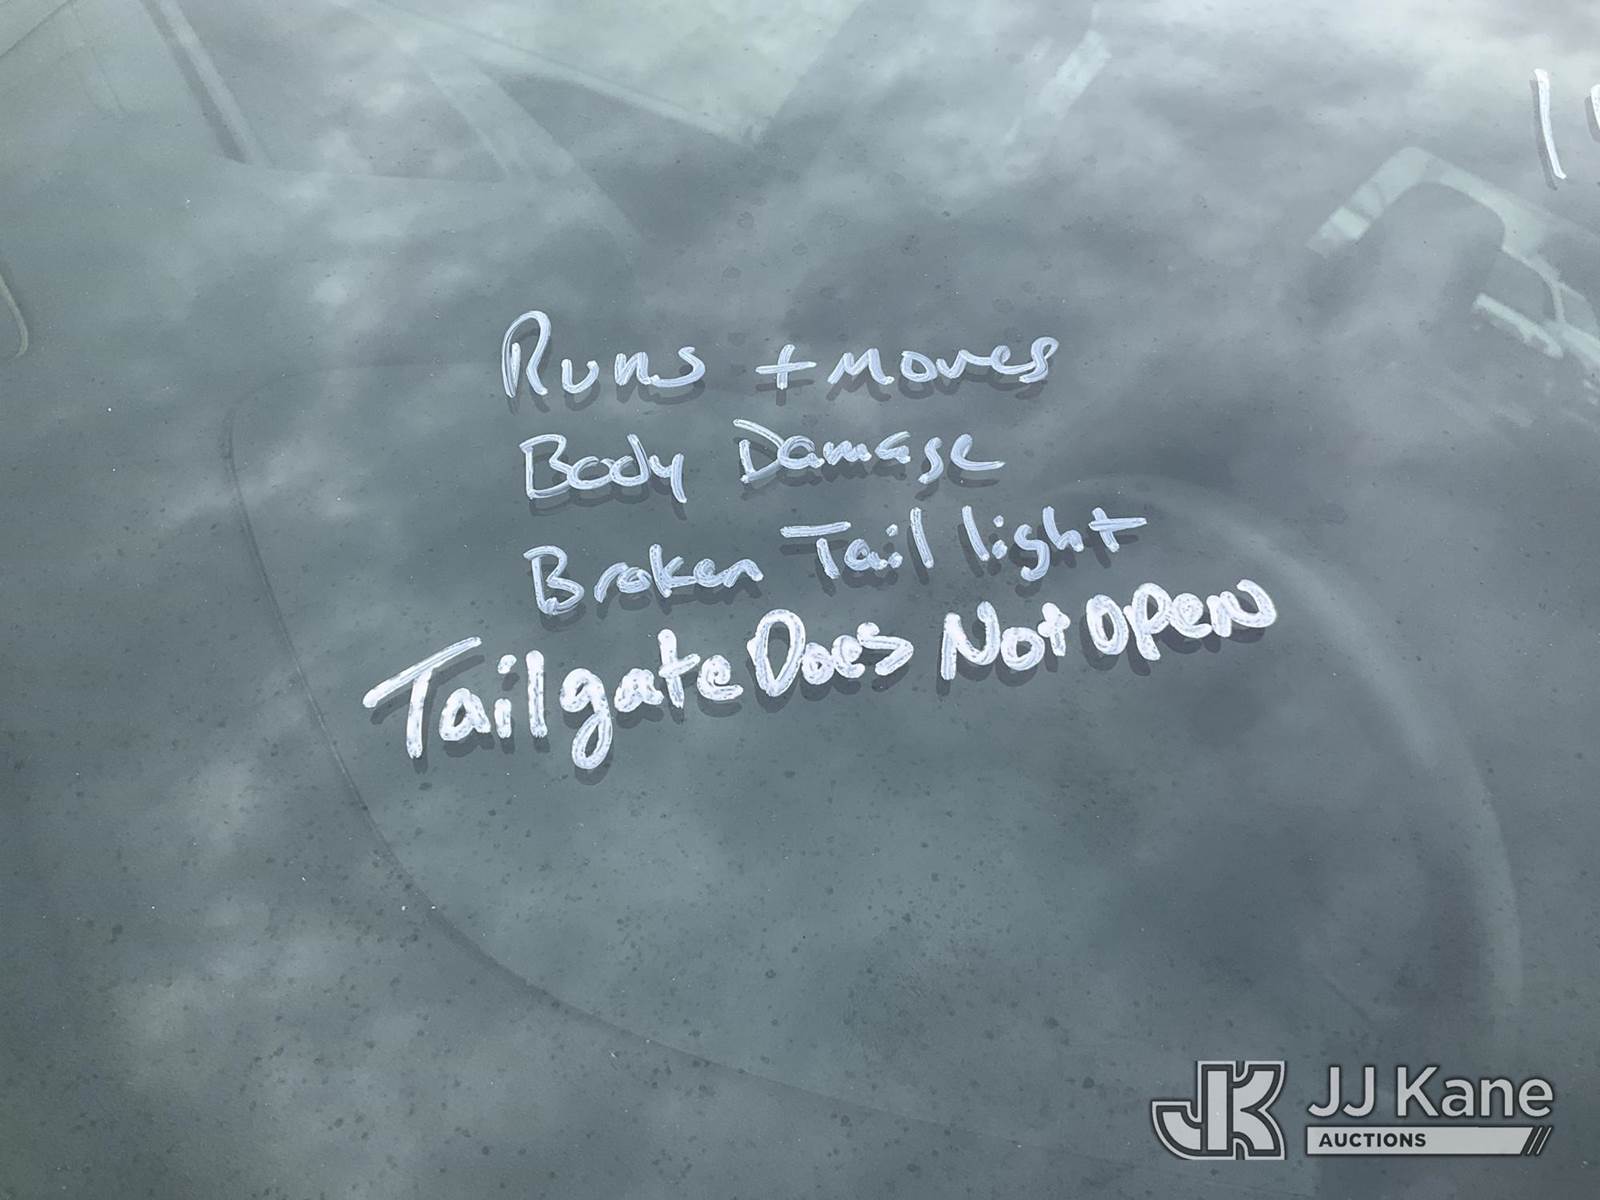 Runs + moves
Body Damage
Broken Tail light
Tailgate Does Not Open
JK JJ Kane
AUCTIONS